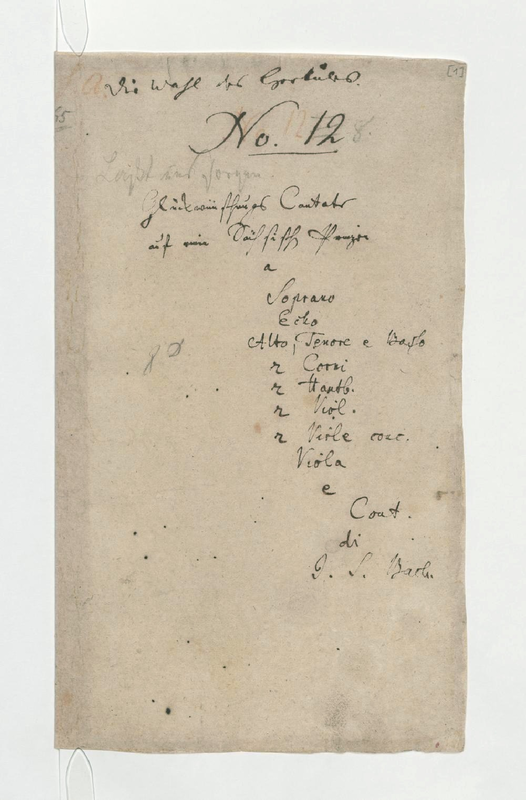 [1]
Die Wahl des Herkules.
No. 12
8.
65
Laßt uns sorgen
Glückwünschungs Cantate
auf einen Sächsisch Prinzen
a
Soprano
Echo
Alto, Tenore e Basso
2 Corni
2 Hautb.
2 Viol.
2 Viole conc.
Viola
e
Cont.
di
J. S. Bach.